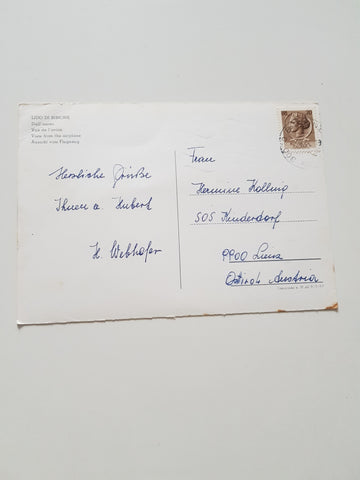 LIDO DI BIBIONE
Dall'aereo
Vue de l'avion
View from the airplane
Ansicht vom Flugzeug
Herzliche Grüße
Ihnen u. Hubert
H. Webhofer
Frau
Hermine Kolling
SOS Kinderdorf
9900 Lienz
Osttirol Austria